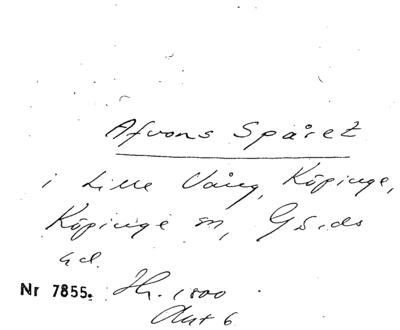 Afvons Spåret
i Lille Vång, Köpinge,
Köpinge sn, Gärds
hd.
Nr 7855. Hr. 1800
Akt 6